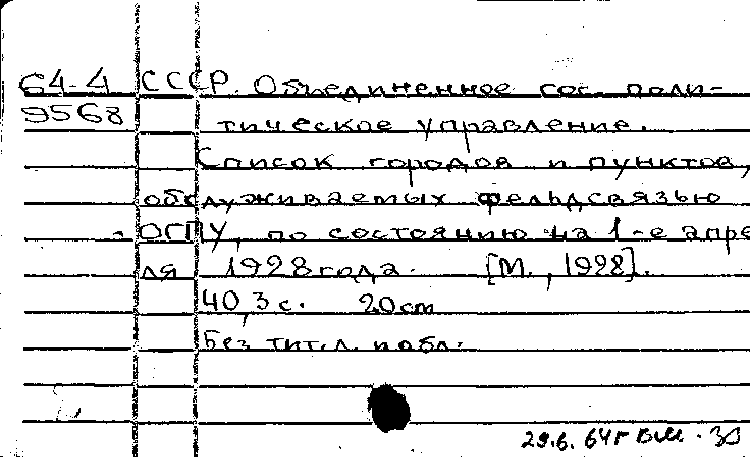 64-4 СССР. Объединенное гос. поли-
9568 тическое управление.
Список городов и пунктов,
обслуживаемых фельдсвязью
ОГПУ, по состоянию на 1-е апре
ля 1928 года. [М., 1928].
40,3 с. 20 cm
Без тит. л. и обл.
29.6. 64 г